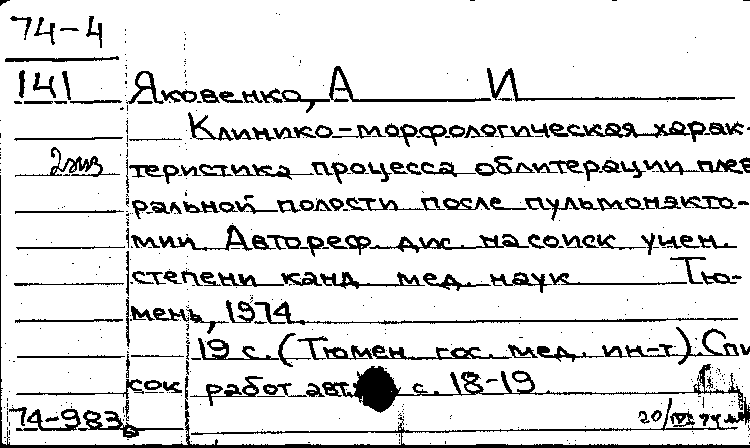 74-4
141 Яковенко, А И
Клинико-морфологическая харак-
2 экз теристика процесса облитерации плев
ральной полости после пульмонэкто-
мии. Автореф. дис. на соиск. учен.
степени канд. мед. наук Тю-
мень, 1974.
19 с. (Тюмен. гос. мед. ин-т). Спи
сок работ авт. с. 18-19
74-983 20/